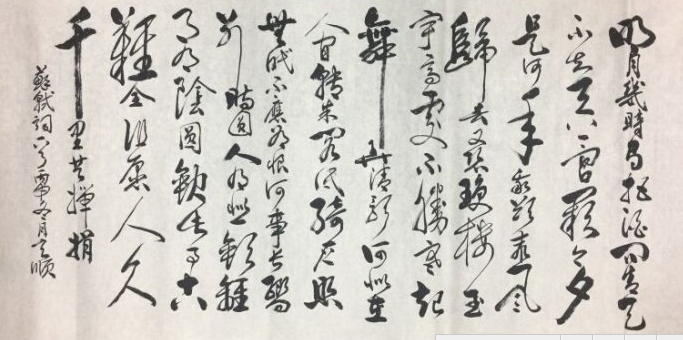 明月幾時有把酒問青天
不知天上宮闕今夕
是何年我欲乘風
歸去又恐瓊樓玉
宇高處不勝寒起
舞弄清影何似在
人间轉朱閣低綺户照
無眠不應有恨何事長
别時圓人有悲歡離
月有陰圓缺此事古
難全但願人久
千里共嬋娟
蘇軾詞